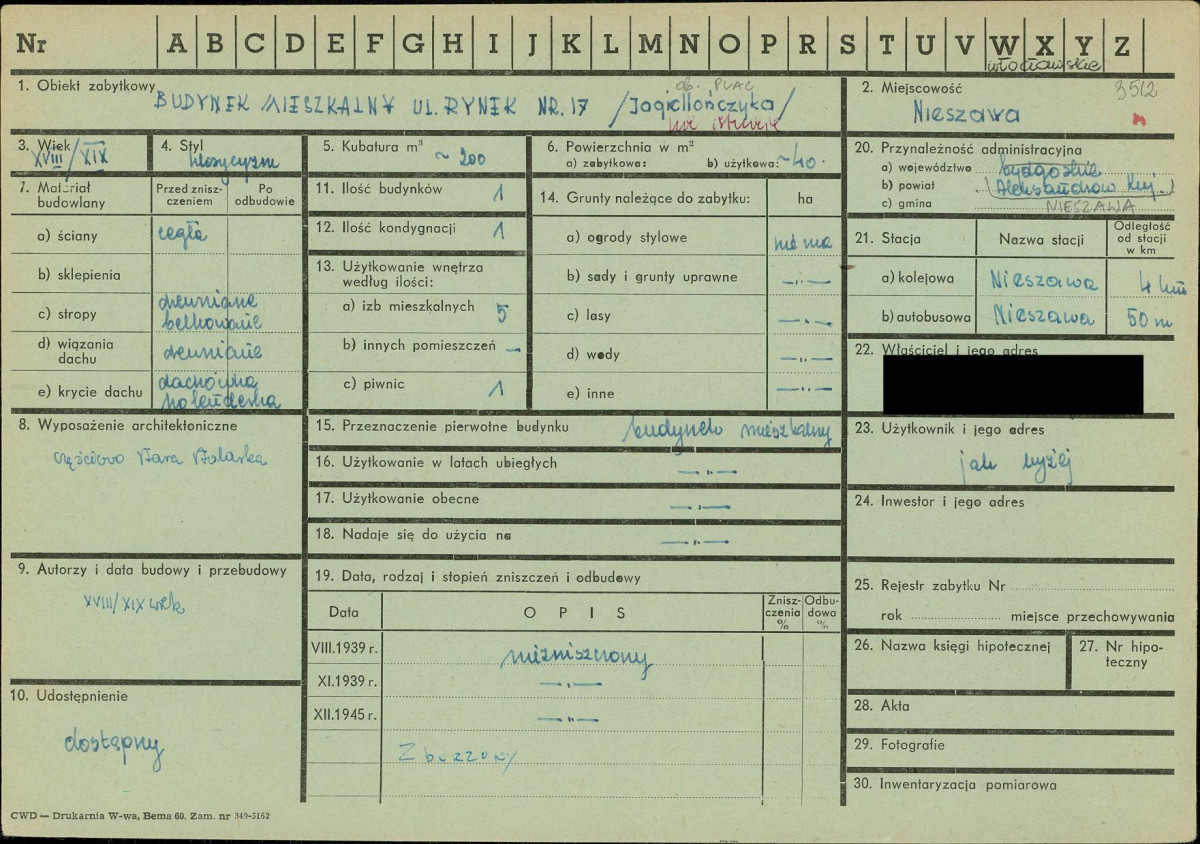 Nr A B C D E F G H I J K L M N O P R S T U V W X Y Z
włocławskie
1. Obiekt zabytkowy
BUDYNEK MIESZKALNY UL. RYNEK NR. 17 /Jagiellończyka/
ob. PLAC
nie istnieje
2. Miejscowość
3512
Nieszawa
3. Wiek
XVIII/XIX
4. Styl
klasycyzm
5. Kubatura m³
~ 200
6. Powierzchnia w m²
a) zabytkowa: b) użytkowa: ~40.
20. Przynależność administracyjna
a) województwo bydgoskie
b) powiat (Aleksandrów Kuj.)
c) gmina NIESZAWA
7. Materiał budowlany
Przed znisz-
czeniem
Po
odbudowie
a) ściany cegła
b) sklepienia
c) stropy drewniane
belkowanie
d) wiązania
dachu drewniane
e) krycie dachu dachówka
holenderka
11. Ilość budynków 1
12. Ilość kondygnacji 1
13. Użytkowanie wnętrza
według ilości:
a) izb mieszkalnych 5
b) innych pomieszczeń —
c) piwnic 1
14. Grunty należące do zabytku: ha
a) ogrody stylowe nie ma
b) sady i grunty uprawne —"—
c) lasy —"—
d) wody —"—
e) inne —"—
21. Stacja Nazwa stacji
Odległość
od stacji
w km
a) kolejowa Nieszawa 4 km
b) autobusowa Nieszawa 50 m
22. Właściciel i jego adres
8. Wyposażenie architektoniczne
częściowo stara stolarka
15. Przeznaczenie pierwotne budynku budynek mieszkalny
16. Użytkowanie w latach ubiegłych —"—
17. Użytkowanie obecne —"—
18. Nadaje się do użycia na —"—
23. Użytkownik i jego adres
jak wyżej
24. Inwestor i jego adres
9. Autorzy i data budowy i przebudowy
XVIII/XIX wiek
10. Udostępnienie
dostępny
19. Data, rodzaj i stopień zniszczeń i odbudowy
Data OPIS
Znisz-
czenia
%
Odbu-
dowa
%
VIII.1939 r. niezniszczony
XI.1939 r. —"—
XII.1945 r. —"—
Zburzony
25. Rejestr zabytku Nr
rok miejsce przechowywania
26. Nazwa księgi hipotecznej
27. Nr hipo-
teczny
28. Akta
29. Fotografie
30. Inwentaryzacja pomiarowa
CWD — Drukarnia W-wa, Bema 60. Zam. nr 349-5162